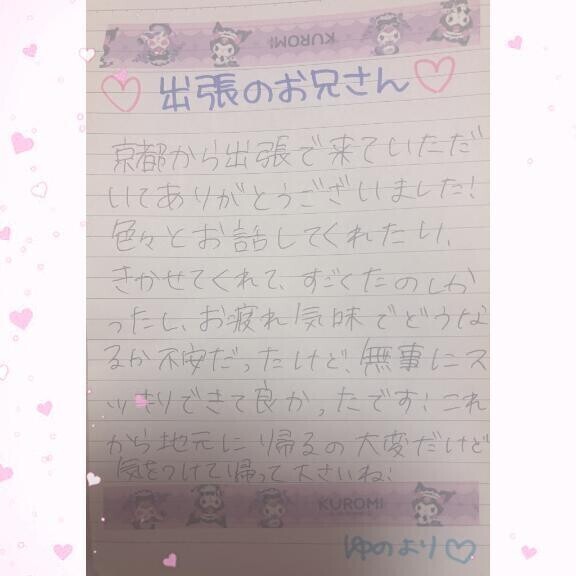 KUROMI KUROMI
出張のお兄さん
京都から出張で来ていただ
いてありがとうございました!
色々とお話してくれたり、
きかせてくれて、すごくたのしか
ったし、お疲れ気味でどうな
るか不安だったけど、無事にス
ッキリできて良かったです!これ
から地元に帰るの大変だけど
気をつけて帰って下さいね!
KUROMI
ゆのより